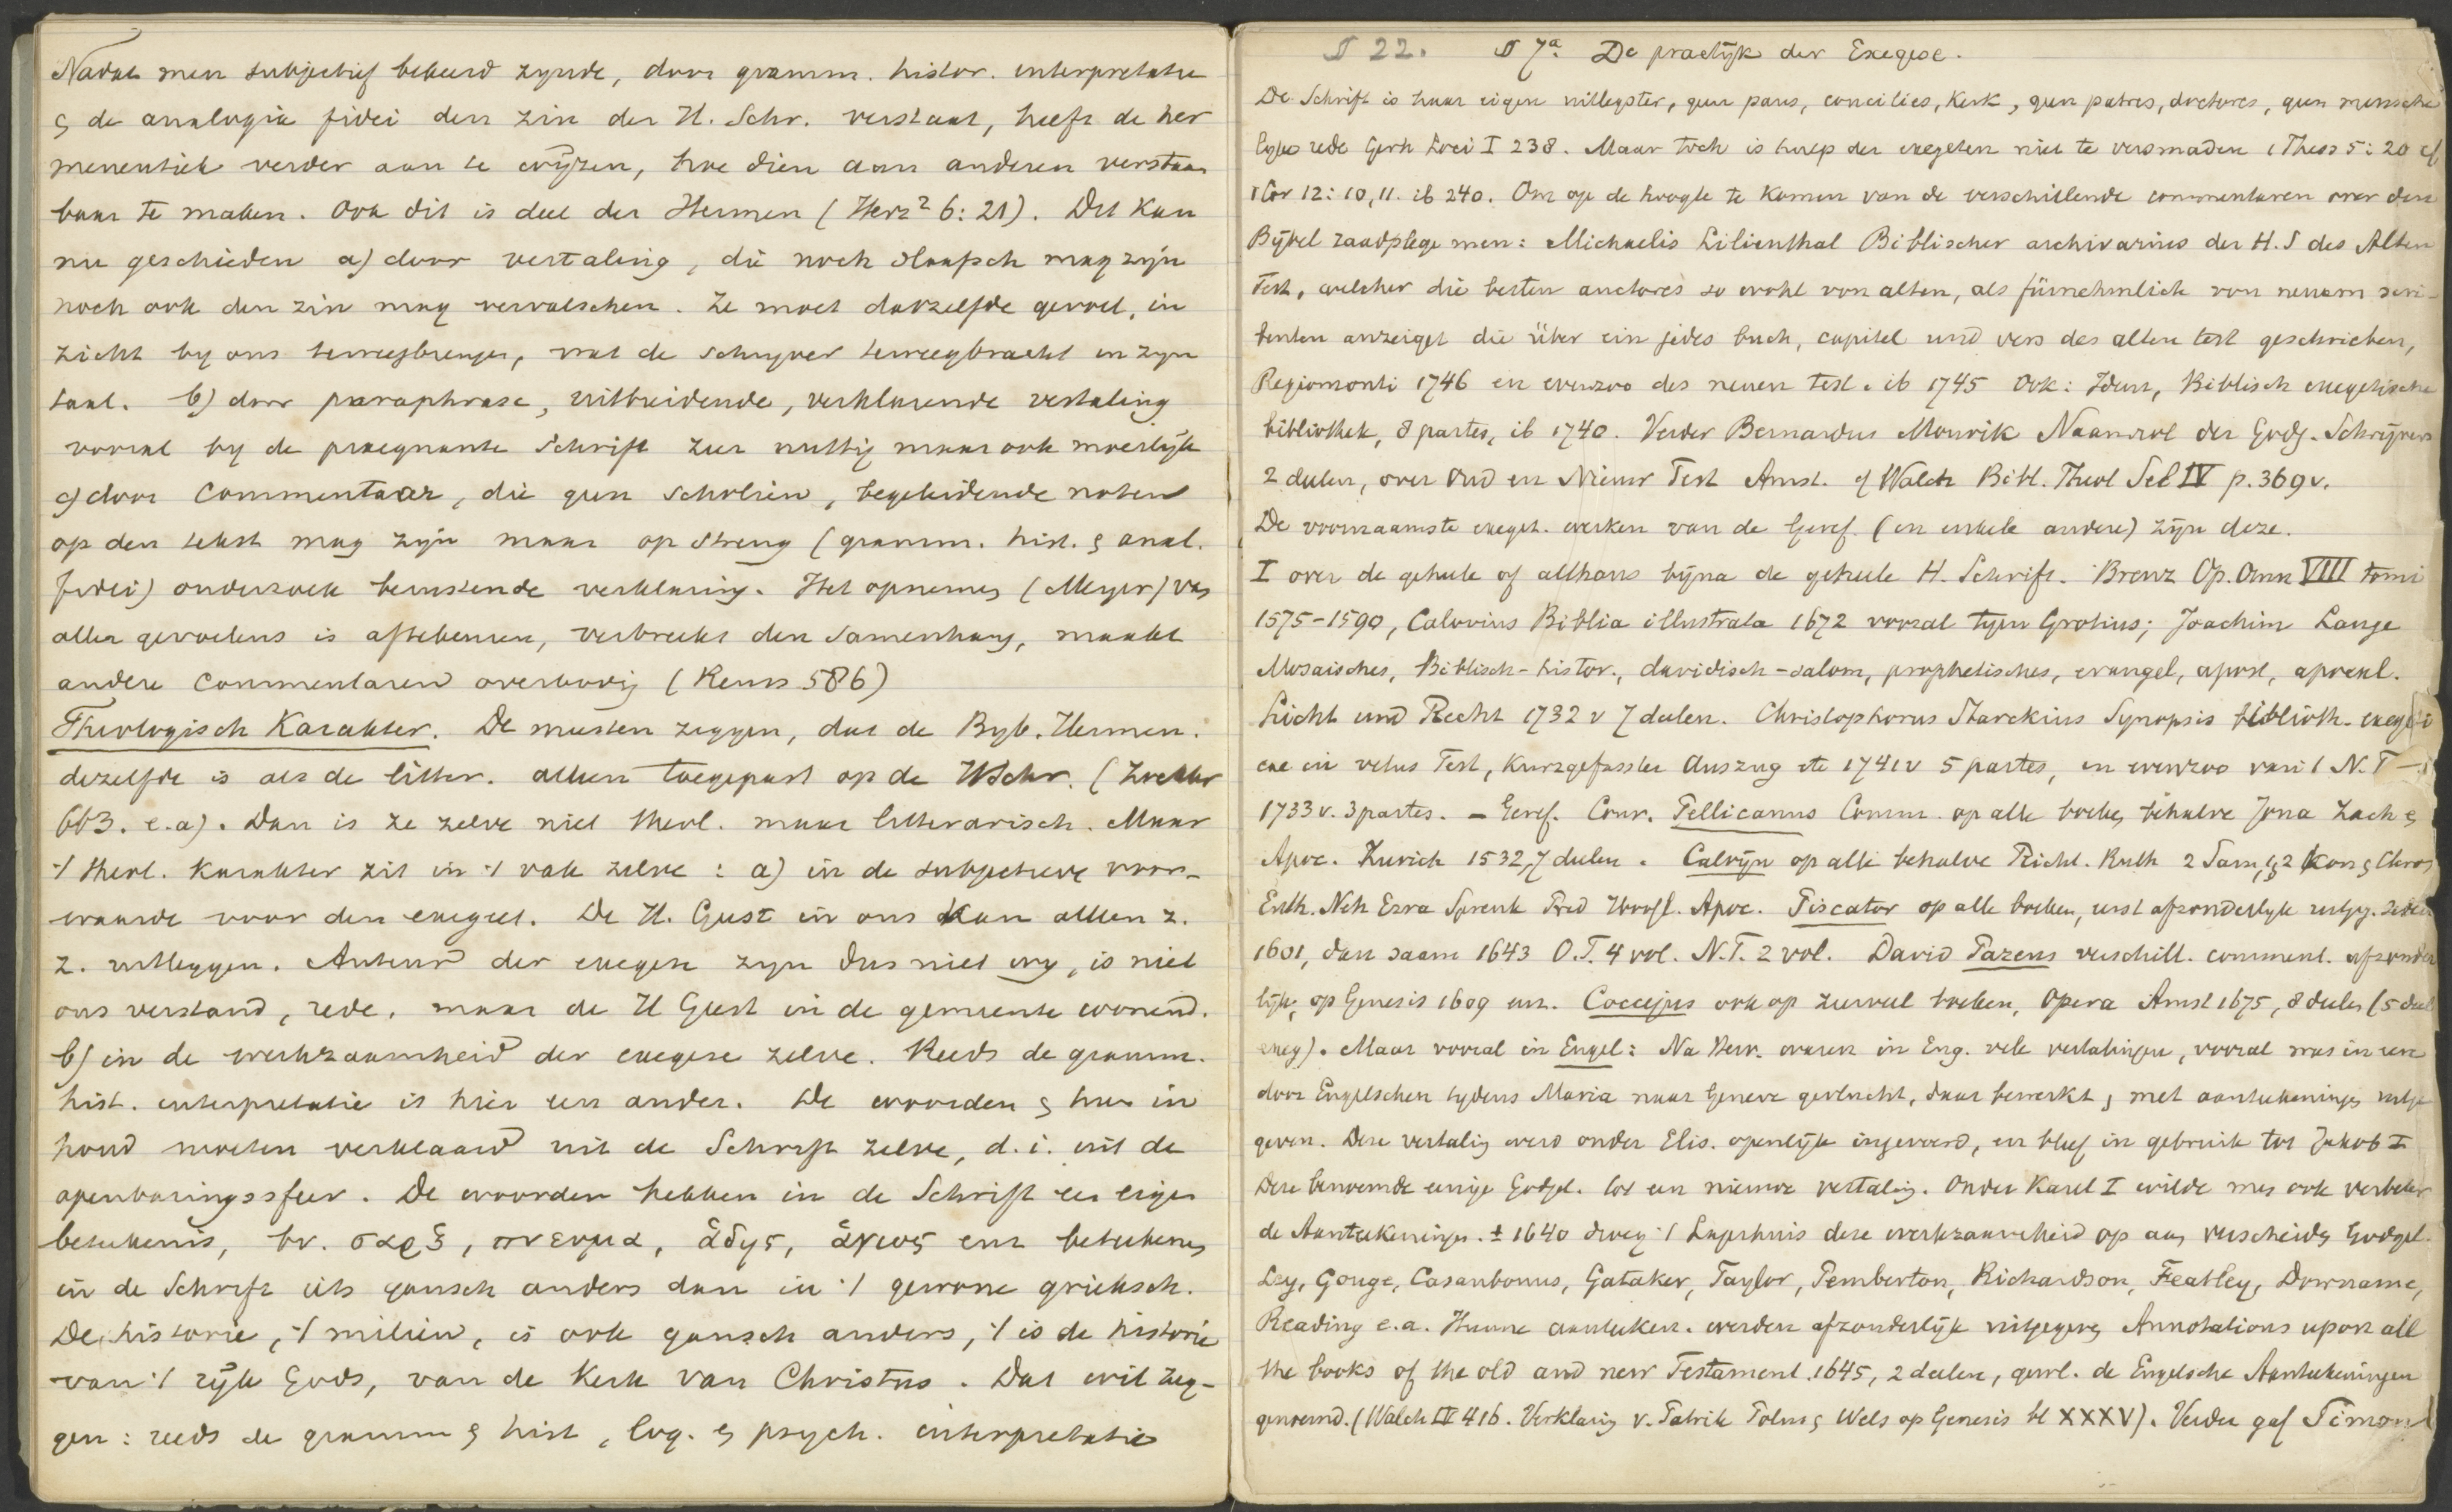 Nadat men subjectief bekeerd zynde, door gramm. histor. interpretatie
& de analogia fidei den zin der H. Schr. verstaat, heeft de her
meneutiek verder aan te wijzen, hoe dien aan anderen verstaan
baar te maken. Ook dit is deel der Hermen (Herz² 6:21). Dit kan
nu geschieden a) door vertaling, die noch slaafsch mag zijn
noch ook den zin mag vervalschen. Ze moet datzelfde gevoel, in
zicht by ons teweegbrengen, wat de schryver teweegbracht in zyn
taal. b) door paraphrase, uitbreidende, verklarende vertaling
vooral by de praegnante Schrift zeer nuttig maar ook moeilijk
c) door commentaar, die geen scholien, begeleidende noten
op den tekst mag zijn maar op streng (gramm. hist. & anal.
fidei) onderzoek berustende verklaring. Het opnemen (Meyer) van
aller gevoelens is aftekeuren, verbreekt den samenhang, maakt
andere commentaren overbodig (Reuss 586)
Theologisch Karakter. De meesten zeggen, dat de Byb. Hermen.
dezelfde is als de litter. alleen toegepast op de HSchr. (Zockler
663. e.a). Dan is ze zelve niet theol. maar litterarisch. Maar
't theol. karakter zit in 't vak zelve: a) in de subjectieve voor-
waarde voor den exegeet. De H. Geest in ons kan alleen z.
z. uitleggen. Auteurs der exegese zyn dus niet wy, is niet
ons verstand, rede, maar de H Geest in de gemeente wonend.
b) in de werkzaamheid der exegese zelve. Reeds de gramm.
hist. interpretatie is hier een ander. De woorden & hun in
houd moeten verklaard uit de Schrift zelve, d.i. uit de
openbaringssfeer. De woorden hebben in de Schrift een eigen
beteekenis, bv. σαρξ, πνευμα, ἁδης, ἁγιος enz beteekenen
in de Schrift iets gansch anders dan in 't gewone grieksch.
De historie, 't milieu, is ook gansch anders, 't is de historie
van 't rijk Gods, van de Kerk van Christus. Dat wil zeg-
gen: reeds de gramm & hist, log. & psych. interpretatie
§ 22. § 7a. De practijk der Exegese.
De Schrift is haar eigen uitlegster, geen paus, concilies, Kerk, geen patres, doctores, geen mensche
lijke rede Gerh Loci I 238. Maar toch is hulp der exegeten niet te versmaden 1 Thess 5:20 cf
1 Cor 12:10,11. ib 240. Om op de hoogte te komen van de verschillende commentaren over den
Bijbel raadplege men: Michaelis Lilienthal Biblischer archivarius der H.S des Alten
Test, welcher die besten auctores so wohl von alten, als fürnehmlich von neuern scri-
benten anzeiget die über ein jedes buch, capitel und vers des alten test geschrieben,
Regiomonti 1746 en evenzoo des neuen test. ib 1745 Ook: Idem, Biblisch exegetische
bibliothek, 8 partes, ib 1740. Verder Bernardus Mourik Naamrol der Godg. Schrijvers
2 deelen, over Oud en Nieuw Test Amst. cf Walch Bibl. Theol Sel IV p. 369v.
De voornaamste exeget. werken van de Geref. (en enkele andere) zijn deze.
I over de geheele of althans bijna de geheele H. Schrift. Brenz Op. Omn VIII tomi
1575-1590, Calovius Biblia illustrata 1672 vooral tegen Grotius; Joachim Lange
Mosaisches, Biblisch-histor., davidisch-salom, prophetisches, evangel, apost, apocal.
Licht und Recht 1732 v 7 deelen. Christophorus Starckius Synopsis biblioth. exegeti
cae in vetus Test, Kurzgefasster Auszug etc 1741v 5 partes, en evenzoo van 't N.T
1733 v. 3 partes. - Geref. Conr. Pellicanus Comm. op alle boeken behalve Jona Zach &
Apoc. Zurich 1532, 7 deelen. Calvijn op alle behalve Richt. Ruth 2 Sam, & 2 Kon & Chron
Esth. Neh Ezra Spreuk Pred Hoogl. Apoc. Piscator op alle boeken, eerst afzonderlyk uitgeg. sedert
1601, dan saam 1643 O.T. 4 vol. N.T. 2 vol. David Pareus verschill. comment. afzonder
lijk, op Genesis 1609 enz. Coccejus ook op zeer veel boeken, Opera Amst 1675, 8 deelen (5 deel
exeg). Maar vooral in Engel: Na Herv. waren in Eng. vele vertalingen, vooral was in eere
door Engelschen tydens Maria naar Geneve gevlucht, daar bewerkt & met aanteekeningen uitge
geven. Deze vertaling werd onder Elis. openlijk ingevoerd, en bleef in gebruik tot Jakob I
Deze benoemde eenige Godgel. tot een nieuwe vertaling. Onder Karel I wilde men ook verbeter
de Aanteekeningen. ± 1640 droeg 't Lagerhuis deze werkzaamheid op aan verscheiden Godgel.
Ley, Gouge, Casaubonus, Gataker, Taylor, Pemberton, Richardson, Featley, Downame,
Reading e.a. Hunne aanteeken. werden afzonderlijk uitgegeven Annotations upon all
the books of the old and new Testament. 1645, 2 deelen, gewl. de Engelsche Aanteekeningen
genoemd. (Walch IV 416. Verklaring v. Patrik Polus & Wels op Genesis bl XXXV). Verder gaf Simon